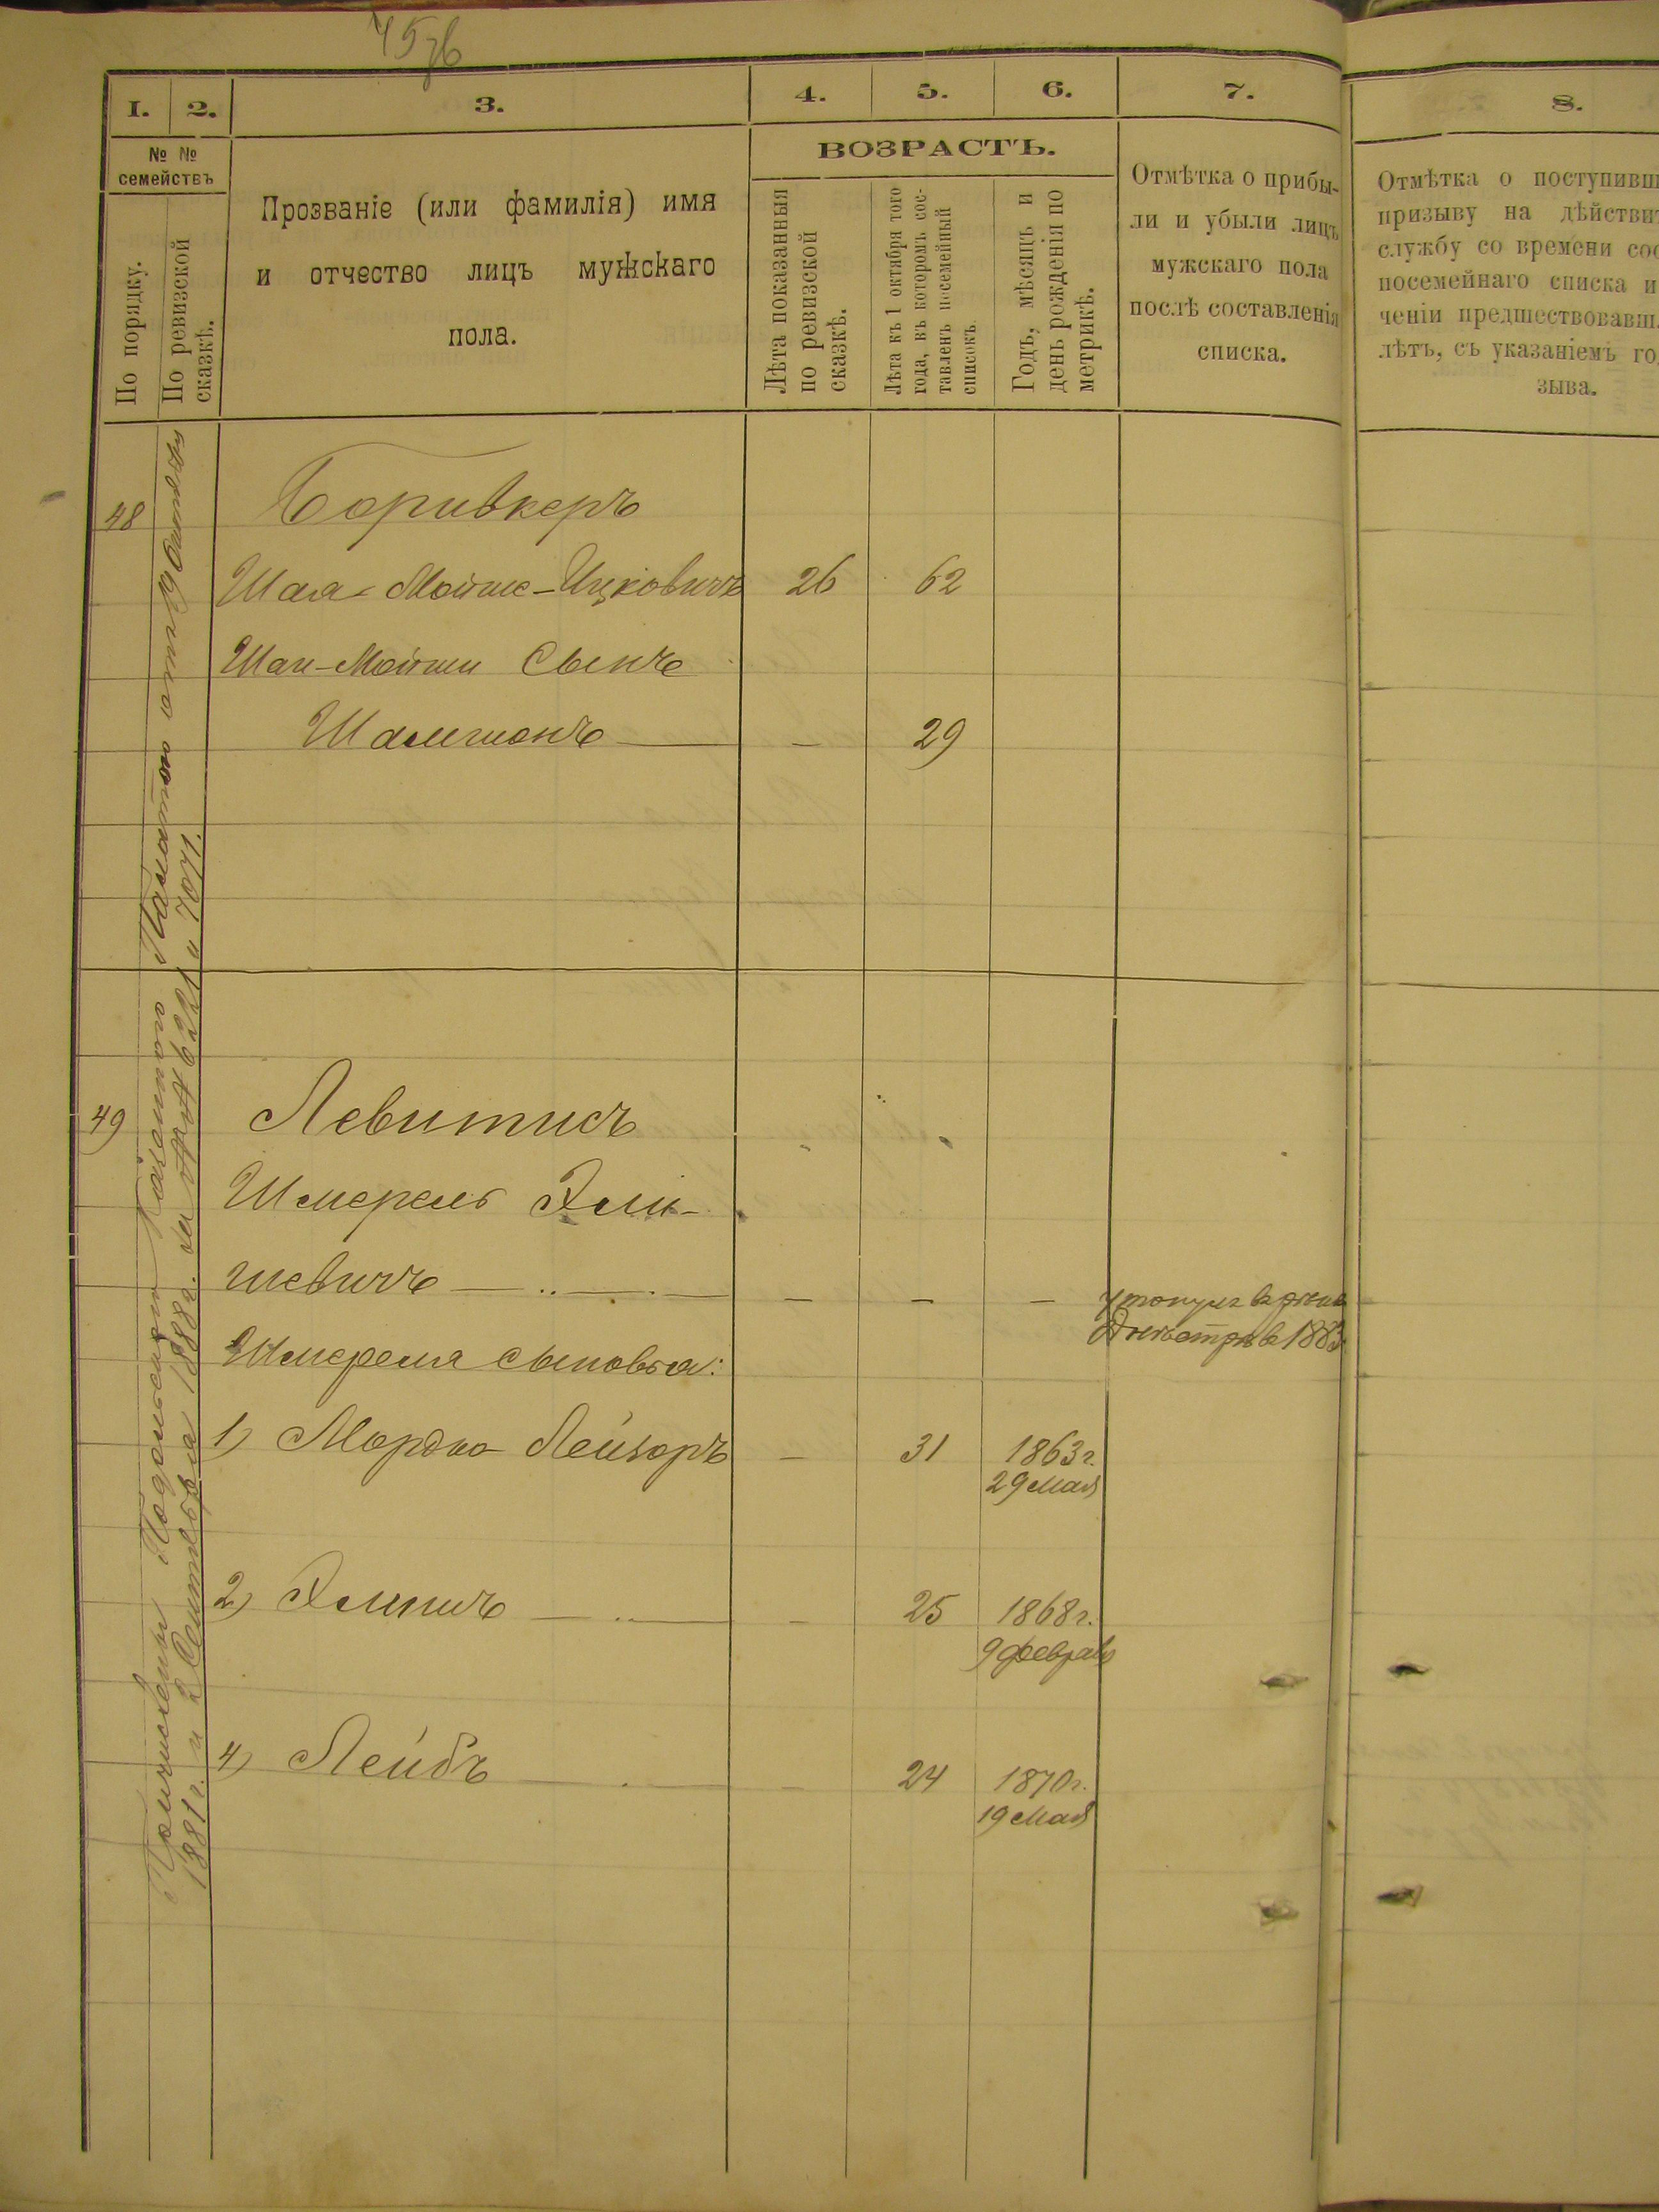 1.
2.
3.
4.
5.
6.
7.
8.
№ №
семействъ
По порядку.
По ревизской
сказкѣ.
Прозваніе (или фамилія) имя
и отчество лицъ мужскаго
пола.
ВОЗРАСТЪ.
Лѣта показанныя
по ревизской
сказкѣ.
Лѣта къ 1 октября того
года, въ которомъ сос-
тавленъ посемейный
списокъ
Годъ, мѣсяцъ и
день рожденія по
метрикѣ.
Отмѣтка о прибы-
ли и убыли лицъ
мужскаго пола
послѣ составленія
списка.
Отмѣтка о поступивш
призыву на дѣйстви
службу со времени сос
посемейнаго списка и
ченіи предшествовавш
лѣтъ, съ указаніемъ го
зыва.
Причислены Подольскою Казенною Палатою
1881г. и 2 Сентября 1888г. за №№ 6221 и 7071.
48
Боривкеръ
Шая-Мойше-Ицковичъ 26 62
Шаи-Мойши Сынъ
Шамшонъ — 29
49
Левитисъ
Шмерель Эли-
шевичъ — — —
утонулъ в рѣкѣ
Днѣстрѣ в 1883
Шмереля сыновья:
1) Мордко Лейзоръ — 31 1863г.
29 Мая
2) Элишъ — 25 1868г.
9 февраля
4) Лейбъ — 24 1870г.
19 Мая